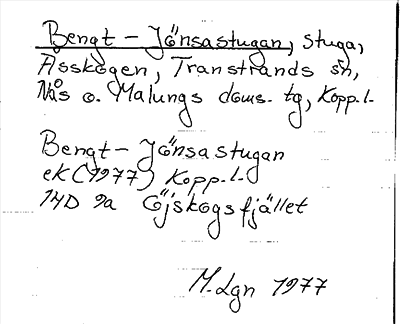 Bengt-Jönsastugan, stuga,
Åsskogen, Transtrands sn,
Nås o. Malungs doms. tg, Kopp.l.
Bengt-Jönsastugan
ek (1977) Kopp.l.
14D 9a Öjskogsfjället
M. Lgn 1977